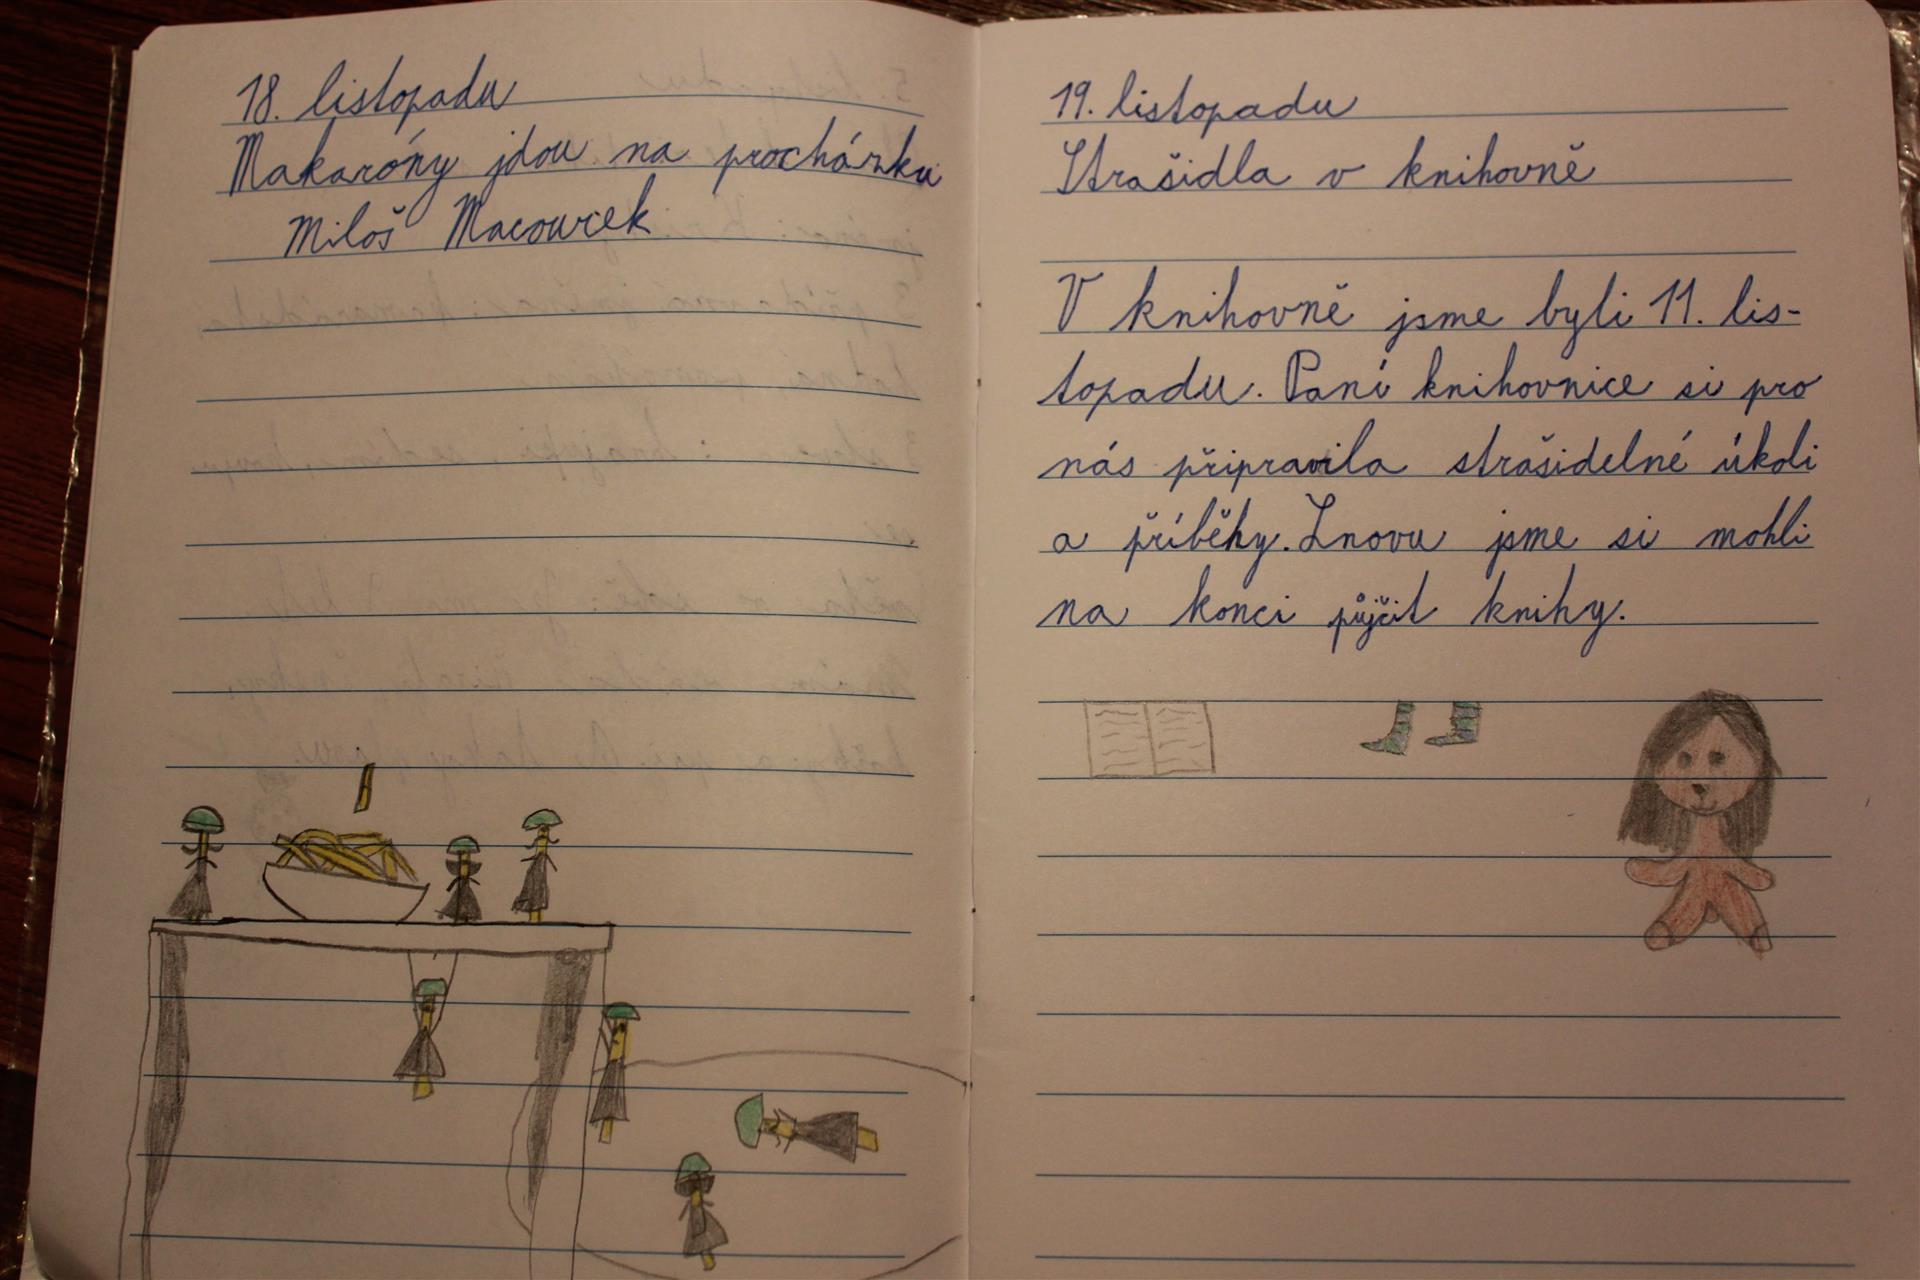 18. listopadu
Makaróny jdou na procházku
Miloš Macourek
19. listopadu
Strašidla v knihovně
V knihovně jsme byli 11. lis-
topadu. Paní knihovnice si pro
nás připravila strašidelné úkoli
a příběhy. Znovu jsme si mohli
na konci půjčit knihy.